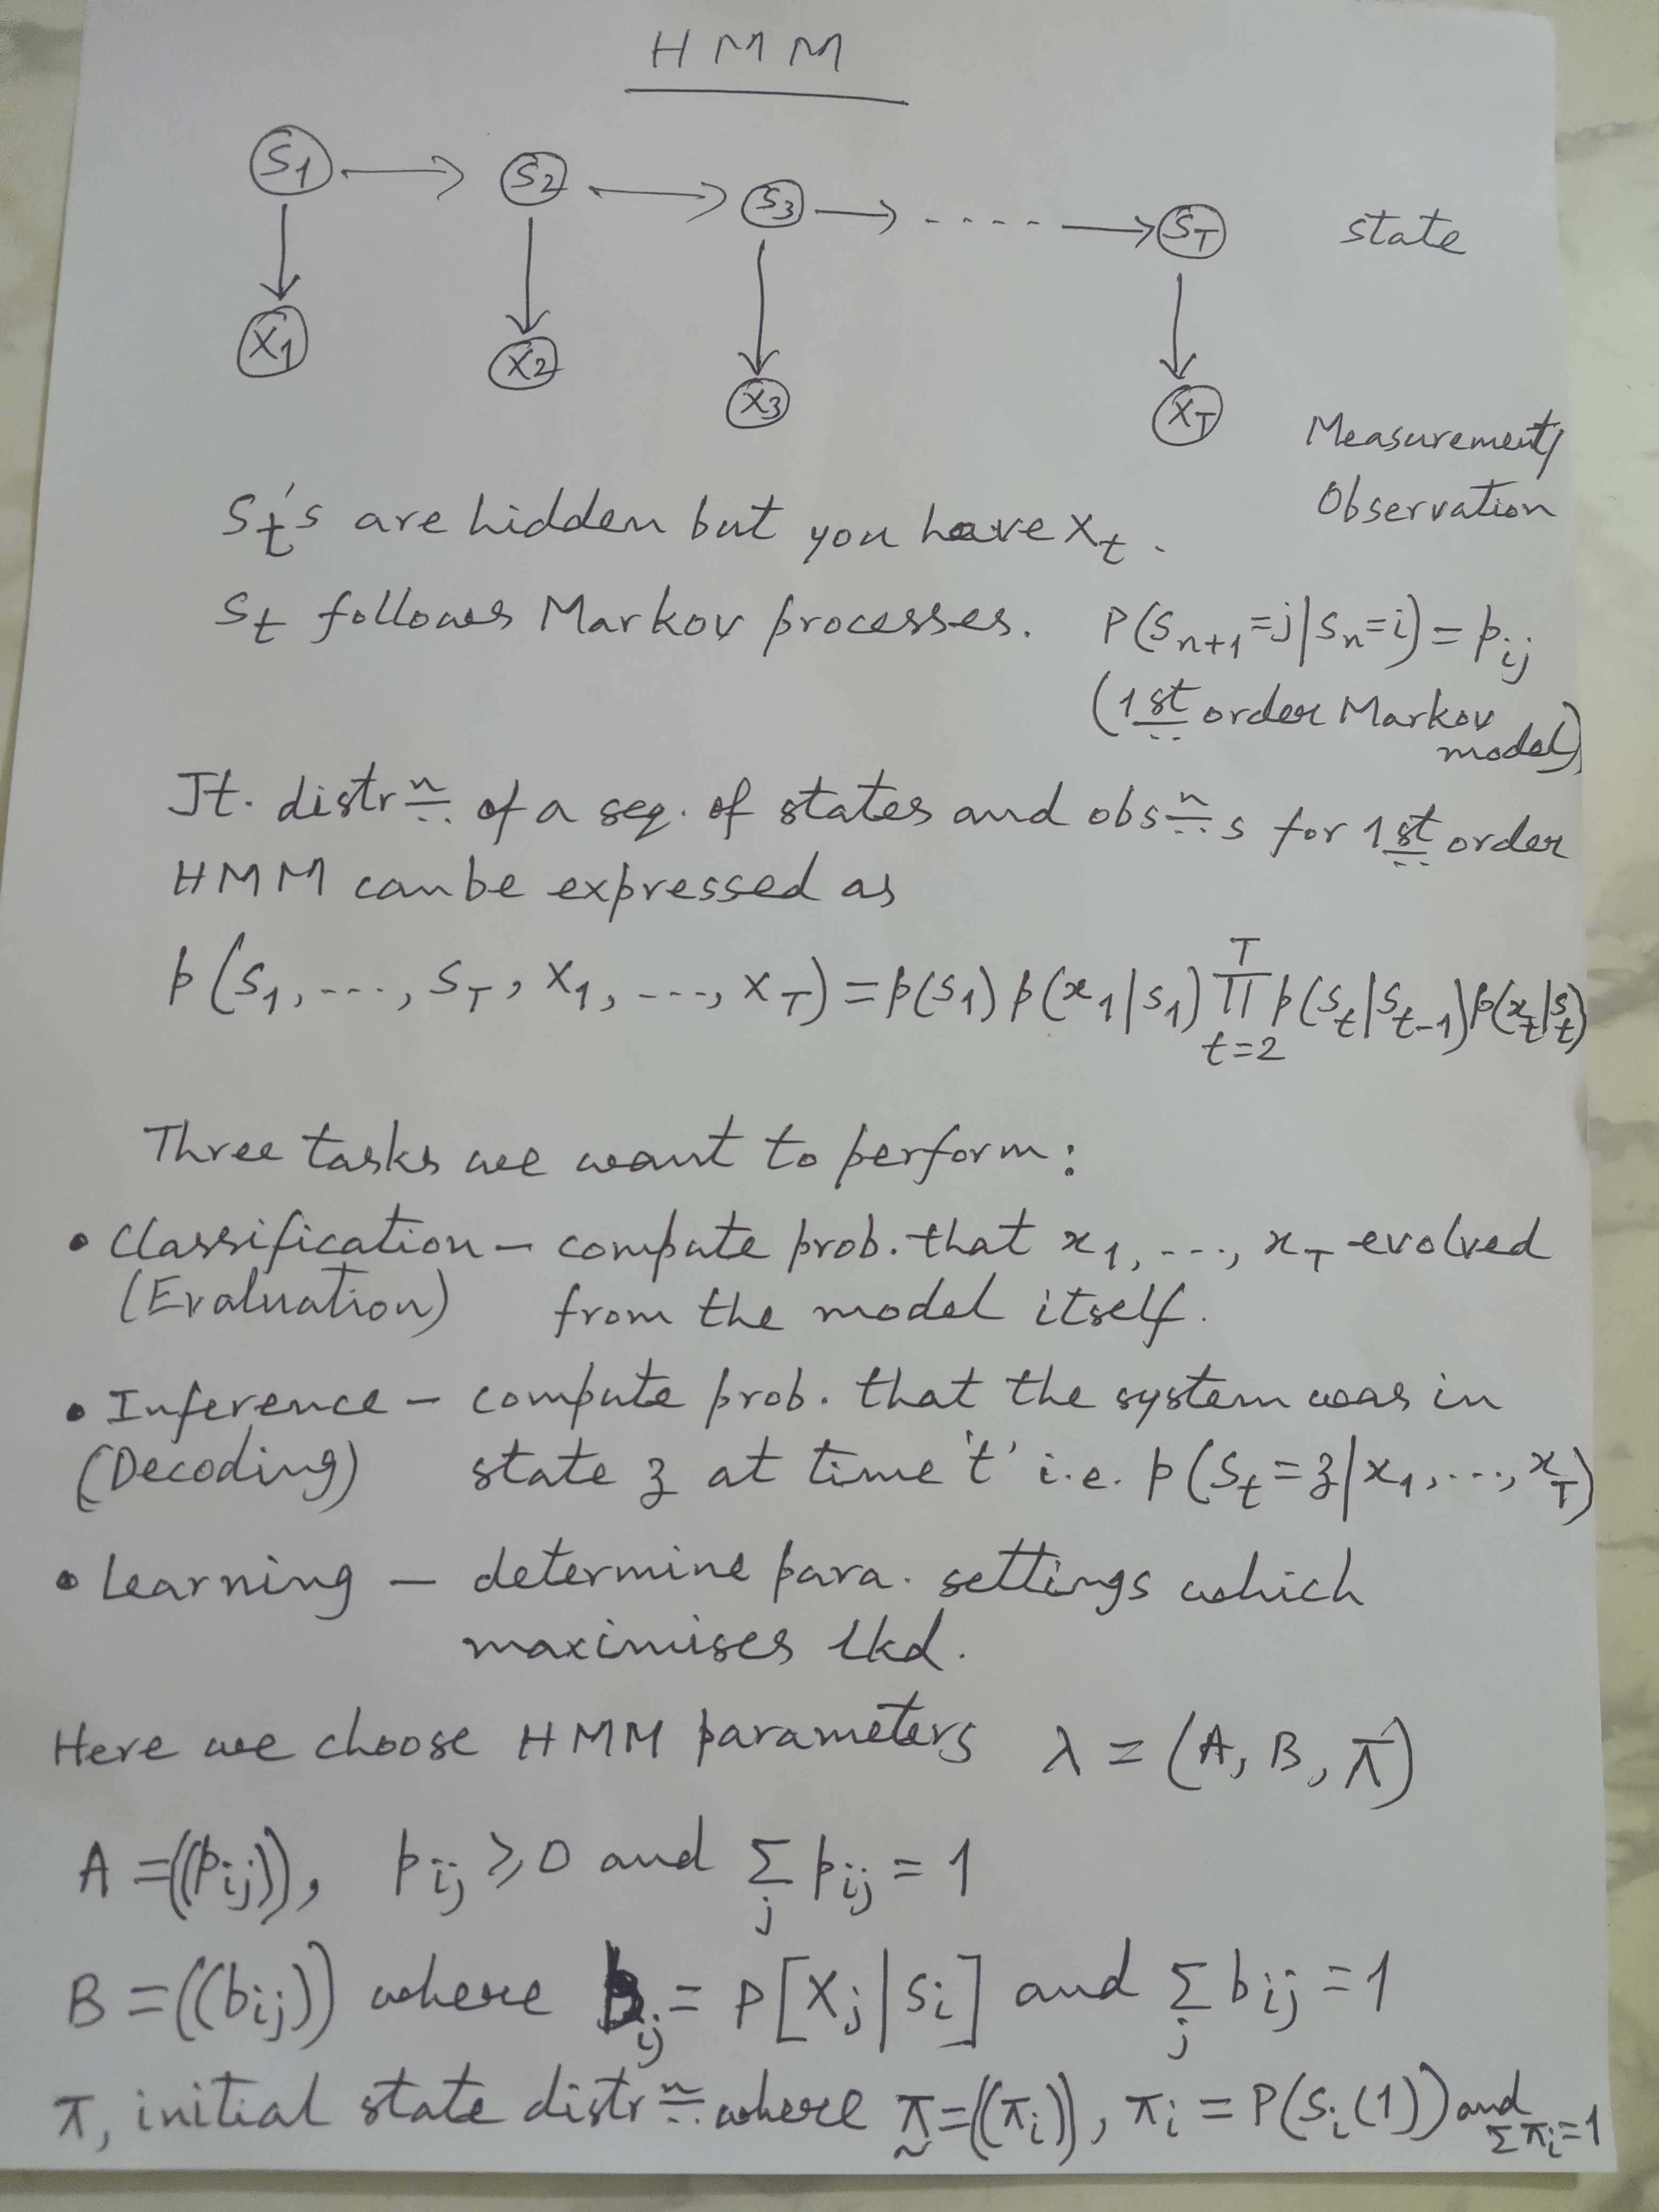 HMM
S1 → S2 → S3 → ---- → ST state
X1 X2 X3 XT Measurement/
Observation
St's are hidden but you have Xt.
St follows Markov processes. P(Sn+1=j|Sn=i) = pij
(1st order Markov
model)
Jt. distrn of a seq. of states and obsns for 1st order
HMM can be expressed as
p(S1, ---, ST, X1, ---, XT) = p(S1) p(x1|S1) T∏t=2 p(St|St-1) p(xt|St)
Three tasks we want to perform:
• Classification – compute prob. that x1, ---, xT evolved
(Evaluation) from the model itself.
• Inference – compute prob. that the system was in
(Decoding) state z at time 't' i.e. p(St=z|x1, ---, xT)
• Learning – determine para. settings which
maximises lkd.
Here we choose HMM parameters λ = (A, B, π)
A = ((pij)), pij ≥ 0 and Σj pij = 1
B = ((bij)) where bij = P[Xj|Si] and Σj bij = 1
π, initial state distrn where π = ((πi)), πi = P(Si(1)) and
Σπi=1